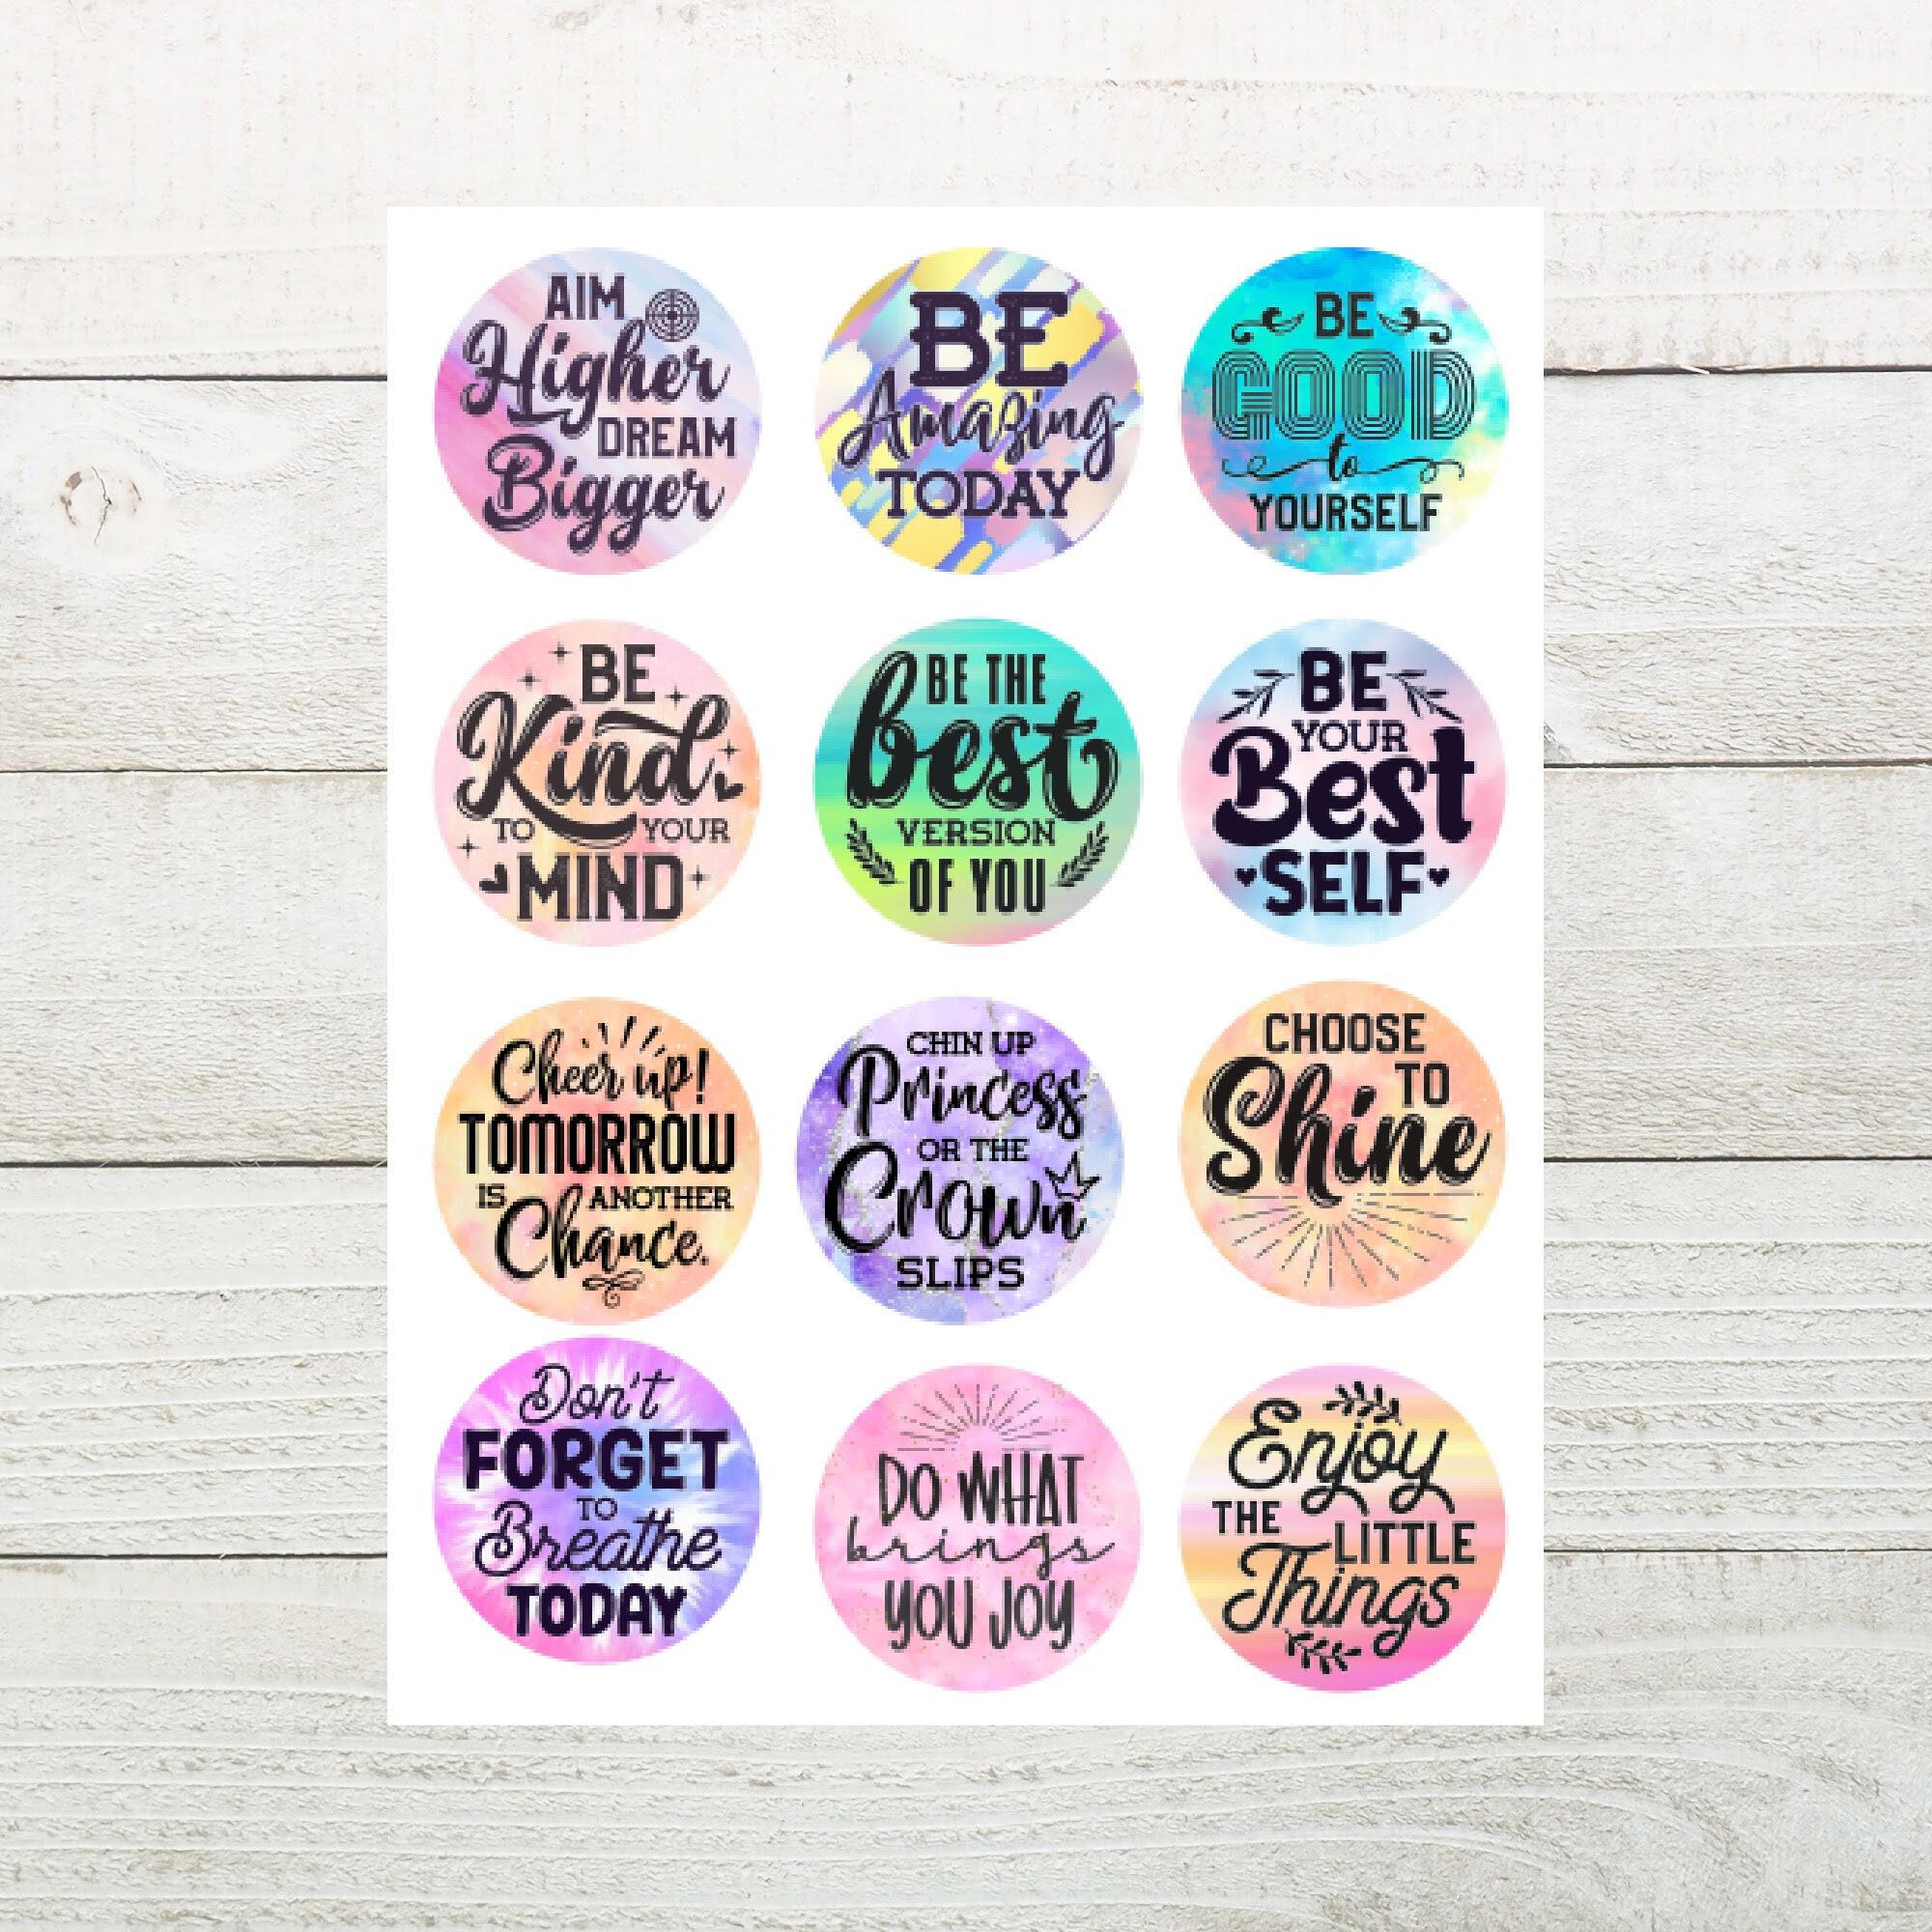 AIM
Higher
DREAM
Bigger
BE
Amazing
TODAY
BE
GOOD
to
YOURSELF
BE
Kind
TO YOUR
MIND
BE THE
best
VERSION
OF YOU
BE
YOUR
Best
SELF
Cheer up!
TOMORROW
IS ANOTHER
Chance.
CHIN UP
Princess
OR THE
Crown
SLIPS
CHOOSE
TO
Shine
Don't
FORGET
TO
Breathe
TODAY
DO WHAT
brings
YOU JOY
Enjoy
THE LITTLE
Things